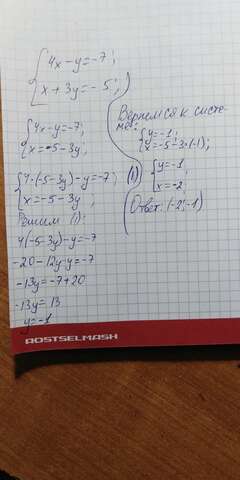 {4x-y=-7;
{x+3y=-5;
{4x-y=-7;
{x=-5-3y;
{4·(-5-3y)-y=-7; (1)
{x=-5-3y;
Решим (1):
4(-5-3y)-y=-7
-20-12y-y=-7
-13y=-7+20
-13y=13
y=-1
Вернемся к систе-
ме:
{y=-1;
{x=-5-3·(-1);
{y=-1;
{x=-2;
Ответ: (-2;-1)
ROSTSELMASH